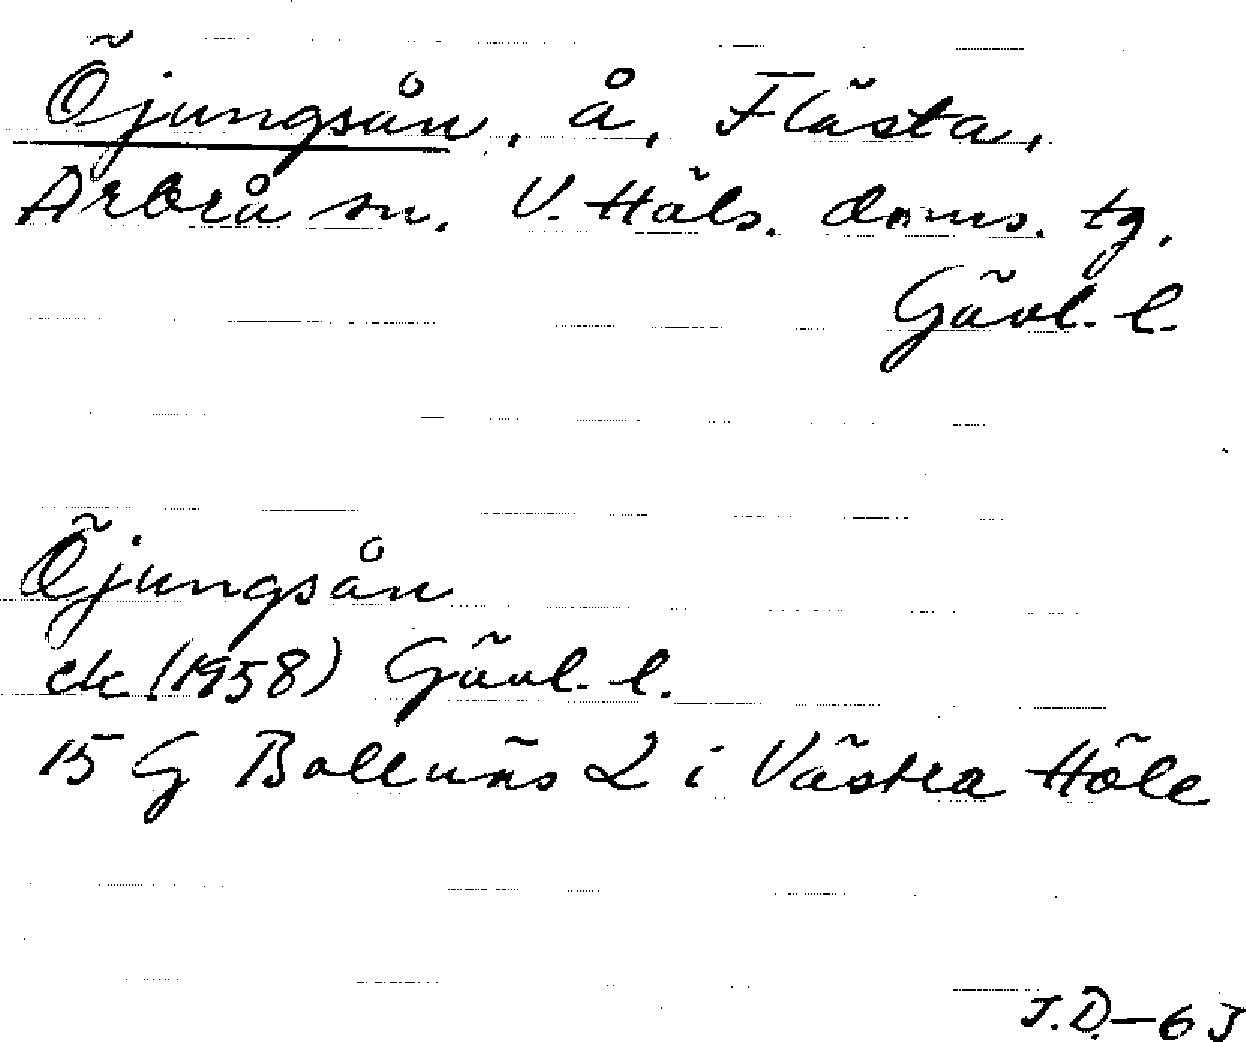 Öjungsån, å, Flästa,
Arbrå sn. V. Häls. doms. tg.
Gävl. l.
Öjungsån
ek (1958) Gävl. l.
15 G Bollnäs 2 i Västra Häls
J.D.-63